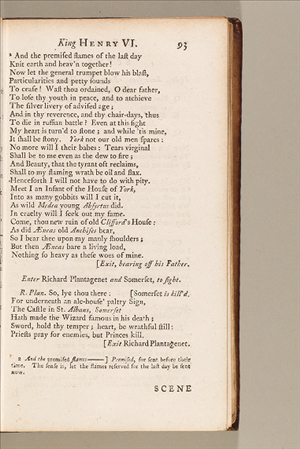 King HENRY VI. 93
ᵃ And the premised flames of the last day
Knit earth and heav'n together!
Now let the general trumpet blow his blast,
Particularities and petty sounds
To cease! Wast thou ordained, O dear father,
To lose thy youth in peace, and to atchieve
The silver livery of advised age;
And in thy reverence, and thy chair-days, thus
To die in ruffian battle! Even at this sight
My heart is turn'd to stone; and while 'tis mine,
It shall be stony. York not our old men spares:
No more will I their babes: Tears virginal
Shall be to me even as the dew to fire;
And Beauty, that the tyrant oft reclaims,
Shall to my flaming wrath be oil and flax.
Henceforth I will not have to do with pity.
Meet I an Infant of the House of York,
Into as many gobbits will I cut it,
As wild Medea young Absyrtus did.
In cruelty will I seek out my fame.
Come, thou new ruin of old Clifford's House:
As did Æneas old Anchises bear,
So I bear thee upon my manly shoulders;
But then Æneas bare a living load,
Nothing so heavy as these woes of mine.
[Exit, bearing off his Father.
Enter Richard Plantagenet and Somerset, to fight.
R. Plan. So, lye thou there: [Somerset is kill'd.
For underneath an ale-house' paltry Sign,
The Castle in St. Albans, Somerset
Hath made the Wizard famous in his death;
Sword, hold thy temper; heart, be wrathful still:
Priests pray for enemies, but Princes kill.
[Exit Richard Plantagenet.
2 And the premised flames——] Premised, for sent before their
time. The sense is, let the flames reserved for the last day be sent
now.
SCENE